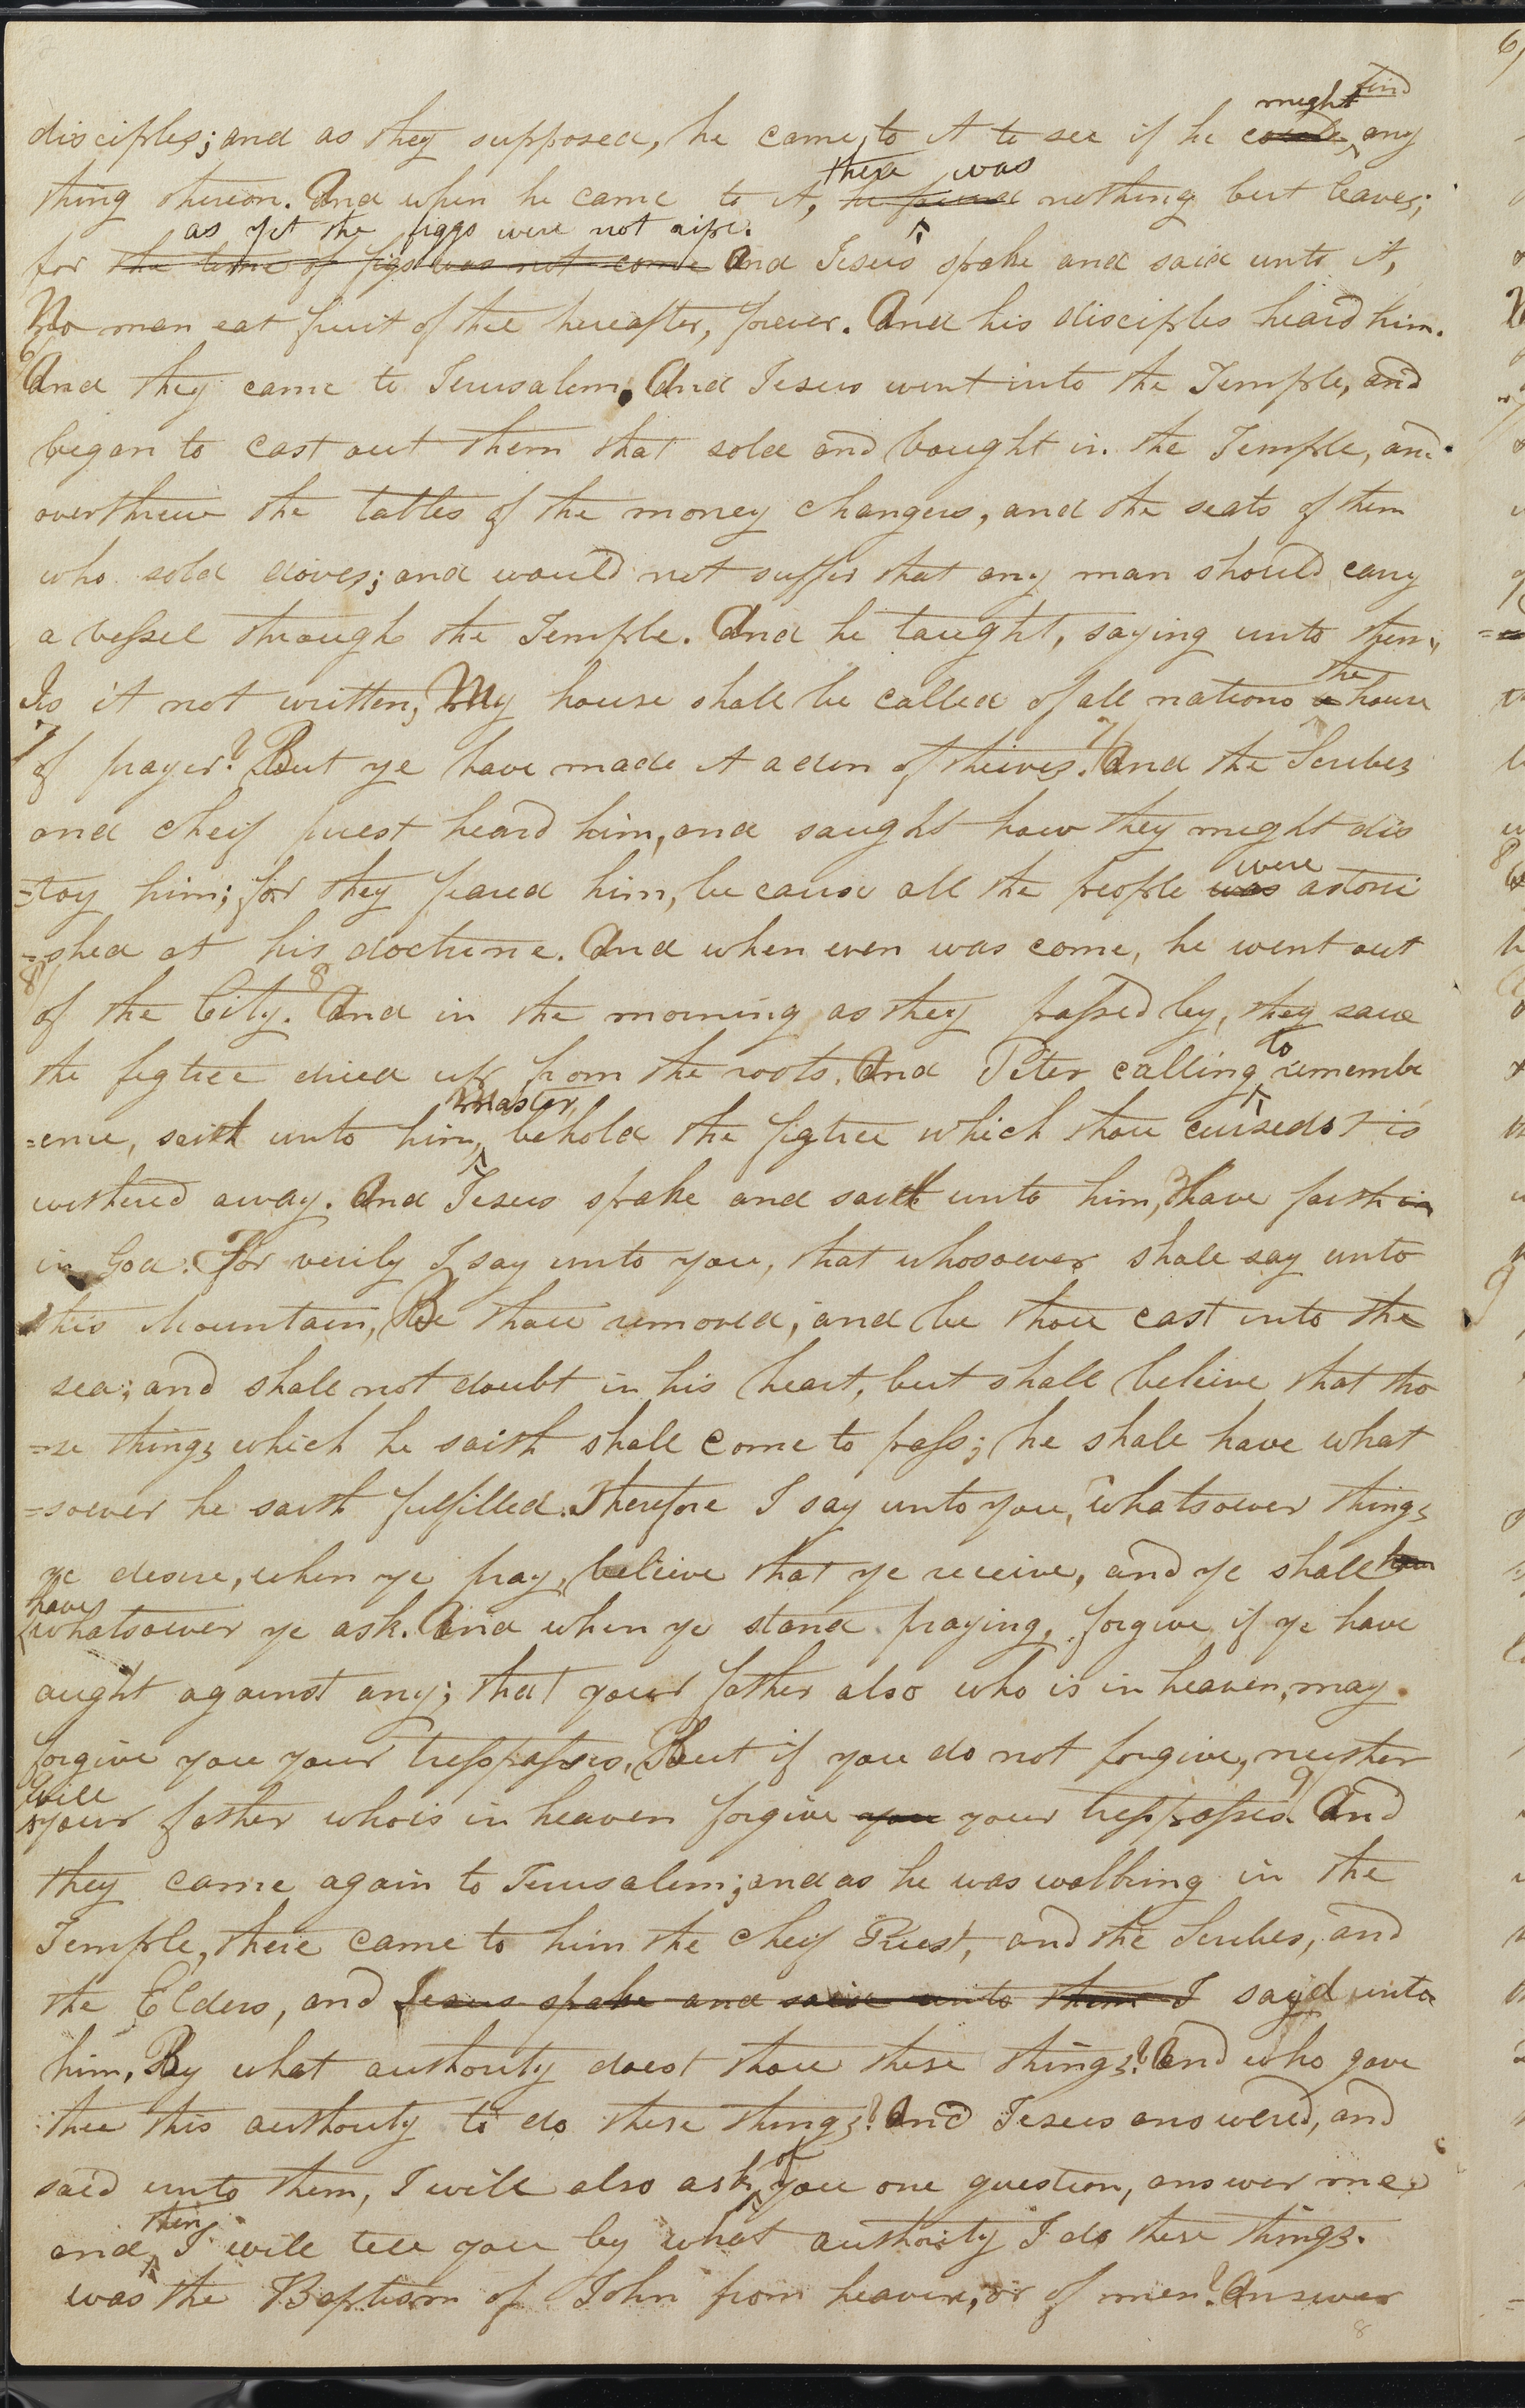 might find
disciples; and as they supposed, he came to it to see if he could any
there was
thing thereon. And when he came to it, he found nothing but leaves;
as yet the figgs were not ripe.
for the time of figs was not come And Jesus spake and said unto it,
No man eat fruit of thee hereafter, forever. And his disciples heard him.
6/
And they came to Jerusalem. And Jesus went into the Temple, and
began to cast out them that sold and bought in the Temple, and
overthrew the tables of the money changers, and the seats of them
who sold doves; and would not suffer that any man should carry
a vessel through the Temple. And he taught, saying unto them,
the
Is it not written, My house shall be called of all nations a house
7 7/
of prayer? But ye have made it a den of theives. And the Scribes
and cheif priest heard him, and saught how they might dis
were
=troy him; for they feared him, because all the people was astoni
=shed at his doctrine. And when even was come, he went out
8/ 8
of the City. And in the morning as they passed by, they saw
to
the figtree dried up from the roots. And Peter calling remembr
Master,
=ence, saith unto him, behold the figtree which thou cursedst is
withered away. And Jesus spake and saith unto him, Have faith in
in God. For verily I say unto you, that whosoever shall say unto
this Mountain, Be thou removed, and be thou cast into the
sea; and shall not doubt in his heart, but shall beleive that tho
=se things which he saith shall come to pass; he shall have what
=soever he saith fulfilled. Therefore I say unto you, whatsoever things
ye desire, when ye pray, beleive that ye receive, and ye shall have
have
whatsoever ye ask. And when ye stand praying, forgive if ye have
aught against any; that your father also who is in heaven, may
forgive you your tresspasses. But if you do not forgive, neither
will 9/
your father whois in heaven forgive you your tresspasses. And
they came again to Jerusalem; and as he was walking in the
Temple, there came to him the cheif Priest, and the Scribes, and
the Elders, and Jesus spake and said unto them I sayd unto
him, By what authority doest thou these things? And who gave
thee this authority to do these things? And Jesus answered, and
of
said unto them, I will also ask you one question, answer me
then
and I will tell you by what authority I do these things.
was the Baptism of John from heaven, or of men? Answer
8